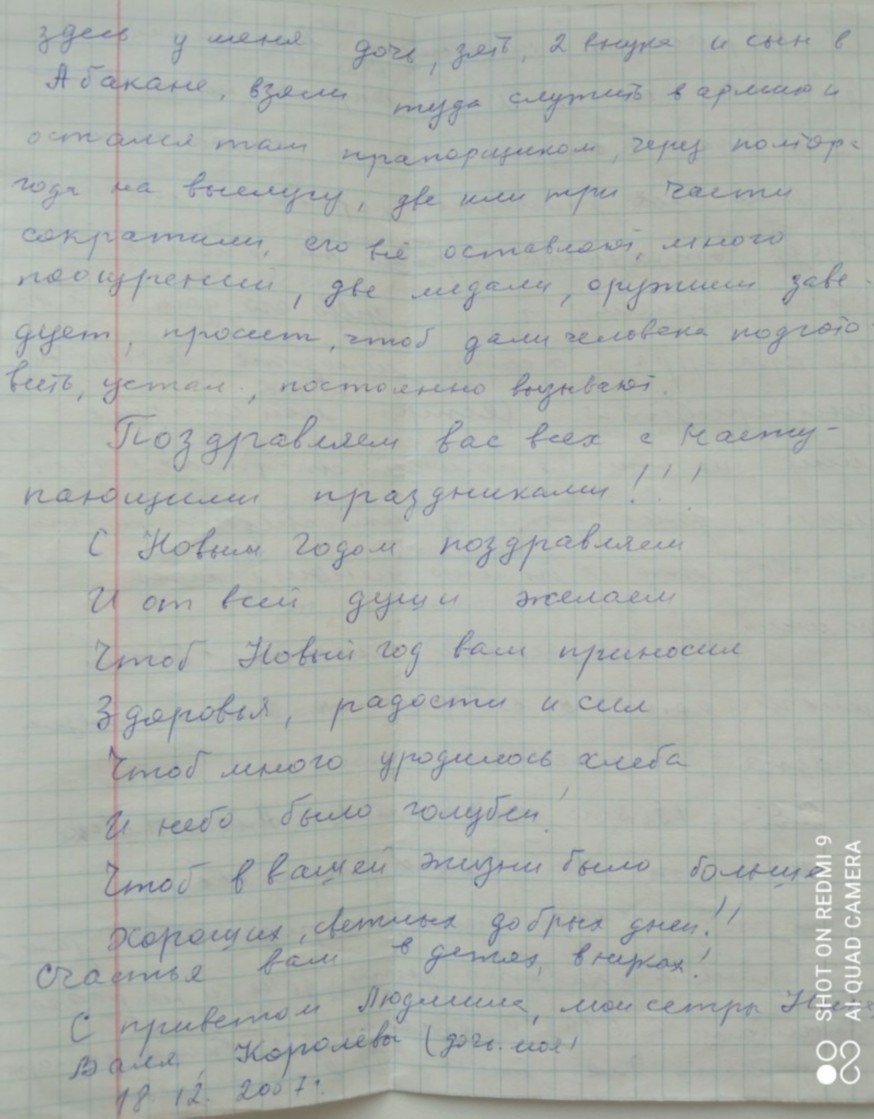 здесь у меня дочь, зять, 2 внука и сын в
Абакане, взяли туда служить в армию и
остался там прапорщиком, через полтора
года на выслугу, две или три части
сократили, его всё оставляют, много
поощрений, две медали, оружием заве-
дует, просит, чтоб дали человека подгото
вить, устал, постоянно вызывают.
Поздравляем вас всех с насту-
пающими праздниками!!!
С Новым годом поздравляем
И от всей души желаем
Чтоб Новый год вам приносил
Здоровья, радости и сил
Чтоб много уродилось хлеба
И небо было голубей!
Чтоб в вашей жизни было больше
Хороших, светлых добрых дней!!
Счастья вам в детях, внуках!
С приветом Людмила, мои сестры
Валя, Королёвы (дочь моя)
18.12.2007г.
SHOT ON REDMI 9
AI QUAD CAMERA